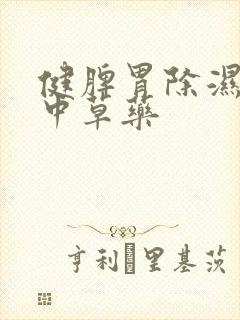 健脾胃除濕
中草藥
亨利·里基茨